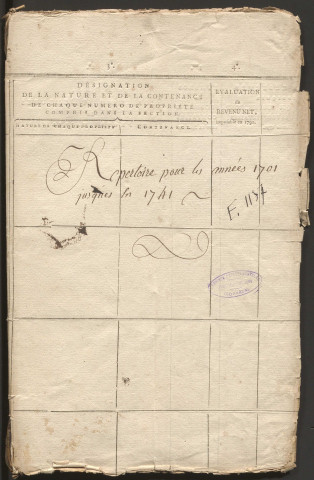 3°. 4°.
DÉSIGNATION
DE LA NATURE ET DE LA CONTENANCE
DE CHAQUE NUMÉRO DE PROPRIÉTÉ
COMPRIS DANS LA SECTION.
ÉVALUATION
DU
REVENU NET,
CONTENANCE.
Repertoire pour les années 1701
jusques les 1741
F. 1137